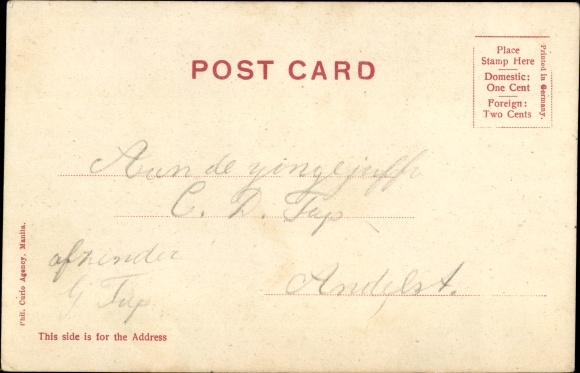 POST CARD
Place
Stamp Here
Domestic:
One Cent
Foreign:
Two Cents
Printed in Germany.
Aan de
C. D. Tap
afzender
G Tap
Andelst.
Phil. Curio Agency, Manila.
This side is for the Address